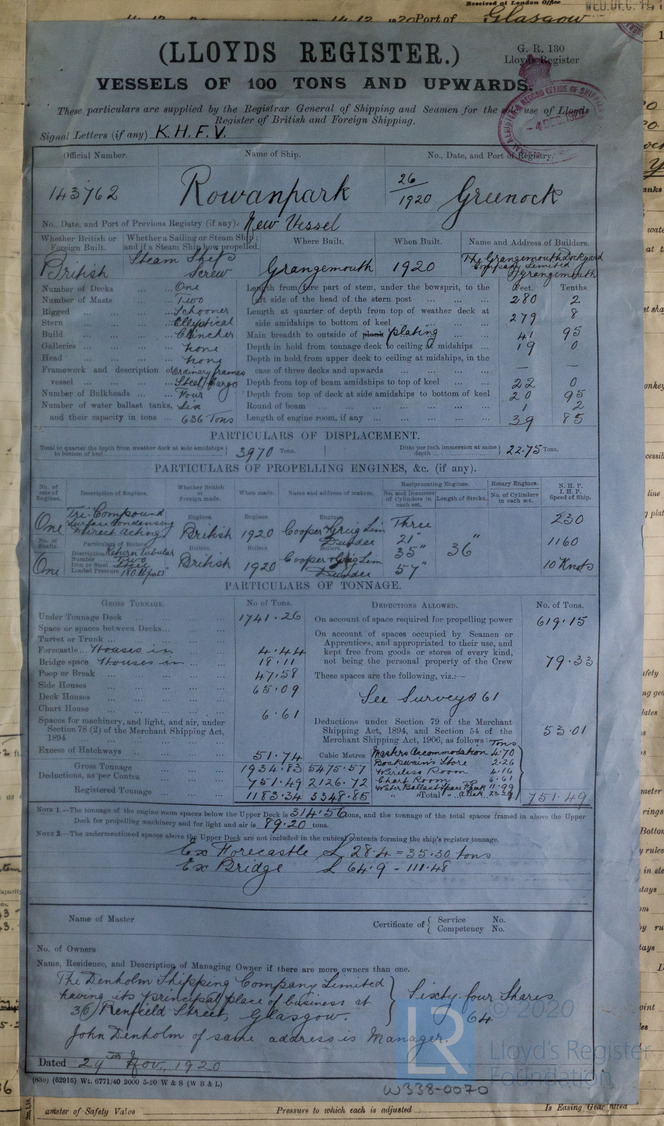 Received at London Office
WED. DEC.
Port of Glasgow
(LLOYDS REGISTER.)
G. R. 130
Lloyd's Register
VESSELS OF 100 TONS AND UPWARDS.
These particulars are supplied by the Registrar General of Shipping and Seamen for the use of Lloyds
Register of British and Foreign Shipping.
Signal Letters (if any) K.H.F.V.
Official Number. Name of Ship. No., Date, and Port of Registry.
143762 Rowanpark 26/1920 Greenock
No., Date, and Port of Previous Registry (if any). New Vessel
Whether British or Foreign Built. Whether a Sailing or Steam Ship; and if a Steam Ship how propelled. Where Built. When Built. Name and Address of Builders.
British Steam Ship Screw Grangemouth 1920 The Grangemouth Dockyard Company Limited Grangemouth
Feet. Tenths
Number of Decks One Length from fore part of stem, under the bowsprit, to the
Number of Masts Two aft side of the head of the stern post 280 2
Rigged Schooner Length at quarter of depth from top of weather deck at
Stern Elliptical side amidships to bottom of keel 279 8
Build Clincher Main breadth to outside of plank plating 41 95
Galleries none Depth in hold from tonnage deck to ceiling at midships 19 0
Head none Depth in hold from upper deck to ceiling at midships, in the
Framework and description of Ordinary frames case of three decks and upwards — —
vessel Steel Cargo Depth from top of beam amidships to top of keel 22 0
Number of Bulkheads Four Depth from top of deck at side amidships to bottom of keel 20 95
Number of water ballast tanks, Six Round of beam 1 2
and their capacity in tons 636 Tons Length of engine room, if any 39 85
PARTICULARS OF DISPLACEMENT.
Total to quarter the depth from weather deck at side amidships to bottom of keel 3970 Tons. Ditto per inch immersion at same depth 22.75 Tons.
PARTICULARS OF PROPELLING ENGINES, &c. (if any).
No. of sets of Engines. Description of Engines. Whether British or Foreign made. When made. Name and address of makers. Reciprocating Engines. Rotary Engines. N.H.P.
No. and Diameter of Cylinders in each set. Length of Stroke. No. of Cylinders in each set. I.H.P. Speed of Ship.
One Tri-Compound Surface Condensing Direct Acting Engines British Engines 1920 Engines Cooper & Greig Lim Dundee Three 21" 35" 57" 36" 230
No. of Shafts Particulars of Boilers 1160
One Description Return Tubular Number Two Iron or Steel Steel Loaded Pressure 180 lbs Boilers British Boilers 1920 Boilers Cooper & Greig Lim Dundee 10 Knots
PARTICULARS OF TONNAGE.
GROSS TONNAGE. No. of Tons. DEDUCTIONS ALLOWED. No. of Tons.
Under Tonnage Deck 1741.26 On account of space required for propelling power 619.15
Space or spaces between Decks On account of spaces occupied by Seamen or
Turret or Trunk Apprentices, and appropriated to their use, and
Forecastle Houses in 4.44 kept free from goods or stores of every kind,
Bridge space Houses in 18.11 not being the personal property of the Crew 79.33
Poop or Break 47.58 These spaces are the following, viz.:—
Side Houses
Deck Houses 65.09 See Surveys 61
Chart House 6.61
Spaces for machinery, and light, and air, under Section 78 (2) of the Merchant Shipping Act, 1894
Deductions under Section 79 of the Merchant Shipping Act, 1894, and Section 54 of the Merchant Shipping Act, 1906, as follows: 53.01
Tons
Excess of Hatchways 51.74 Cubic Metres Masters Accommodation 4.70
Gross Tonnage 1934.83 5475.57 Boatswain's Store 2.26
Deductions, as per Contra 751.49 2126.72 Wireless Room 4.16
Chart Room 6.61
Registered Tonnage 1183.34 3348.85 Total 751.49
NOTE 1.—The tonnage of the engine room spaces below the Upper Deck is 314.56 tons, and the tonnage of the total spaces framed in above the Upper
Deck for propelling machinery and for light and air is 89.20 tons.
NOTE 2.—The undermentioned spaces above the Upper Deck are not included in the cubical contents forming the ship's register tonnage.
Ex Forecastle L 28.4 = 35.30 tons
Ex Bridge L 64.9 - 111.48
Name of Master Certificate of Service No. Competency No.
No. of Owners
Name, Residence, and Description of Managing Owner if there are more owners than one.
The Denholm Shipping Company Limited
having its principal place of business at Sixty-four Shares
36 Renfield Street, Glasgow. 64
John Denholm of same address is Manager.
Dated 29th Nov. 1920
(630) (62915) Wt. 6771/40 2000 5-20 W & S (W B & L)
W338-0070
LR
© 2020
Lloyd's Register
Foundation
Safety Valve Pressure to which each is adjusted Is Easing Gear fitted